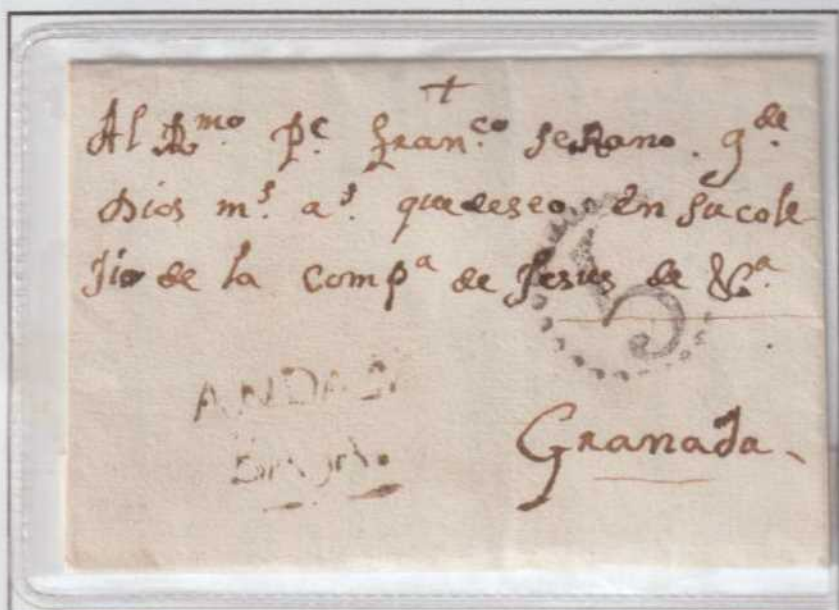 +
Al Rmo Pe Franco serrano. gde
Dios ms as que deseo en su cole
jio de la Compa de Jesus de &a
5
ANDALU
BAJA.
Granada